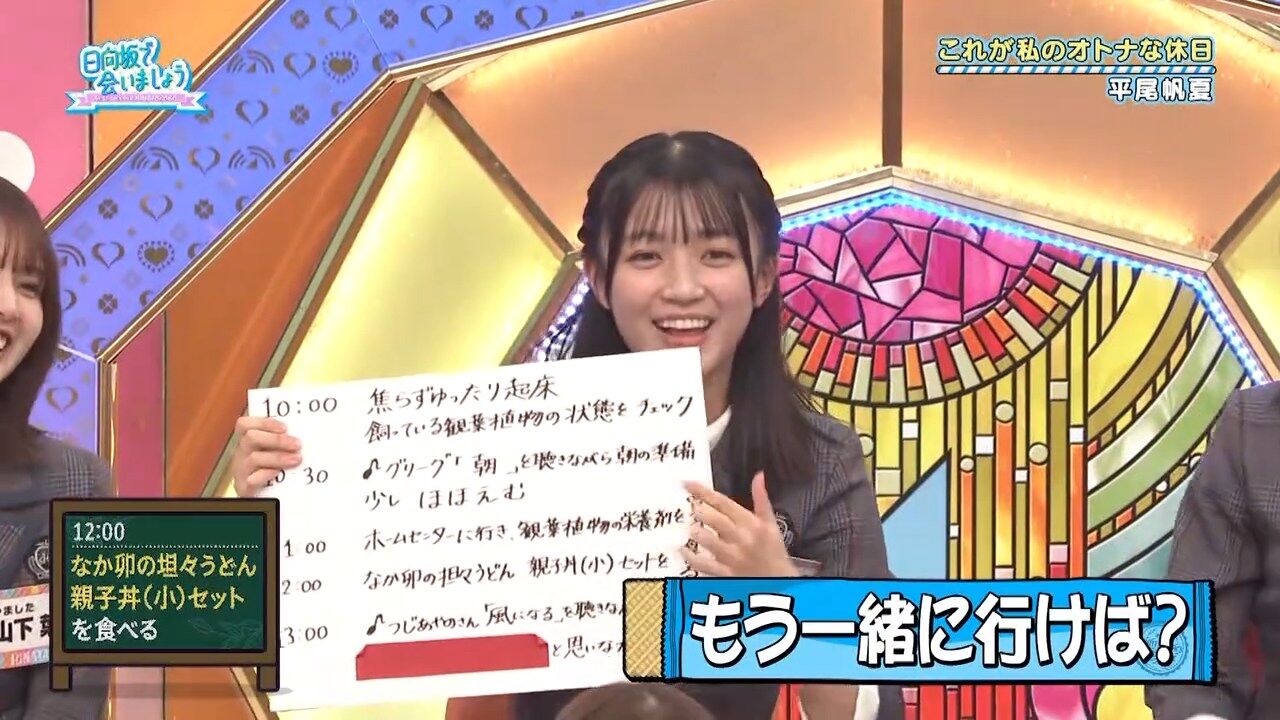 日向坂で
会いましょう
これが私のオトナな休日
平尾帆夏
10:00 焦らずゆったり起床
飼っている観葉植物の状態をチェック
30 ♪グリーグ「朝」を聴きながら朝の準備
少しほほえむ
1:00 ホームセンターに行き、観葉植物の栄養剤を
2:00 なか卯の担々うどん 親子丼(小)セットを
13:00 ♪つじあやのさん「風になる」を聴きな
と思いな
12:00
なか卯の坦々うどん
親子丼(小)セット
を食べる
ました
山下 葉
もう一緒に行けば?